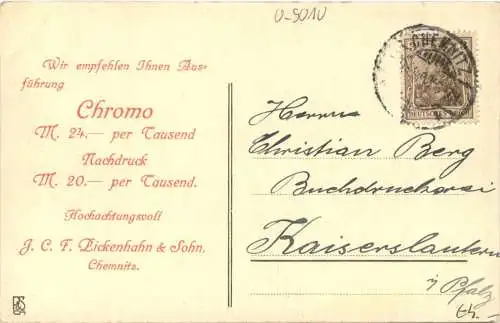 U-9010
Wir empfehlen Ihnen Aus-
führung
Chromo
M. 24,— per Tausend
Nachdruck
M. 20.— per Tausend.
Hochachtungsvoll
J. C. F. Pickenhahn & Sohn,
Chemnitz.
CHEMNITZ
DEUTSCHES REICH
Herrn
Christian Berg
Buchdruckerei
Kaiserslautern
i/Pfalz